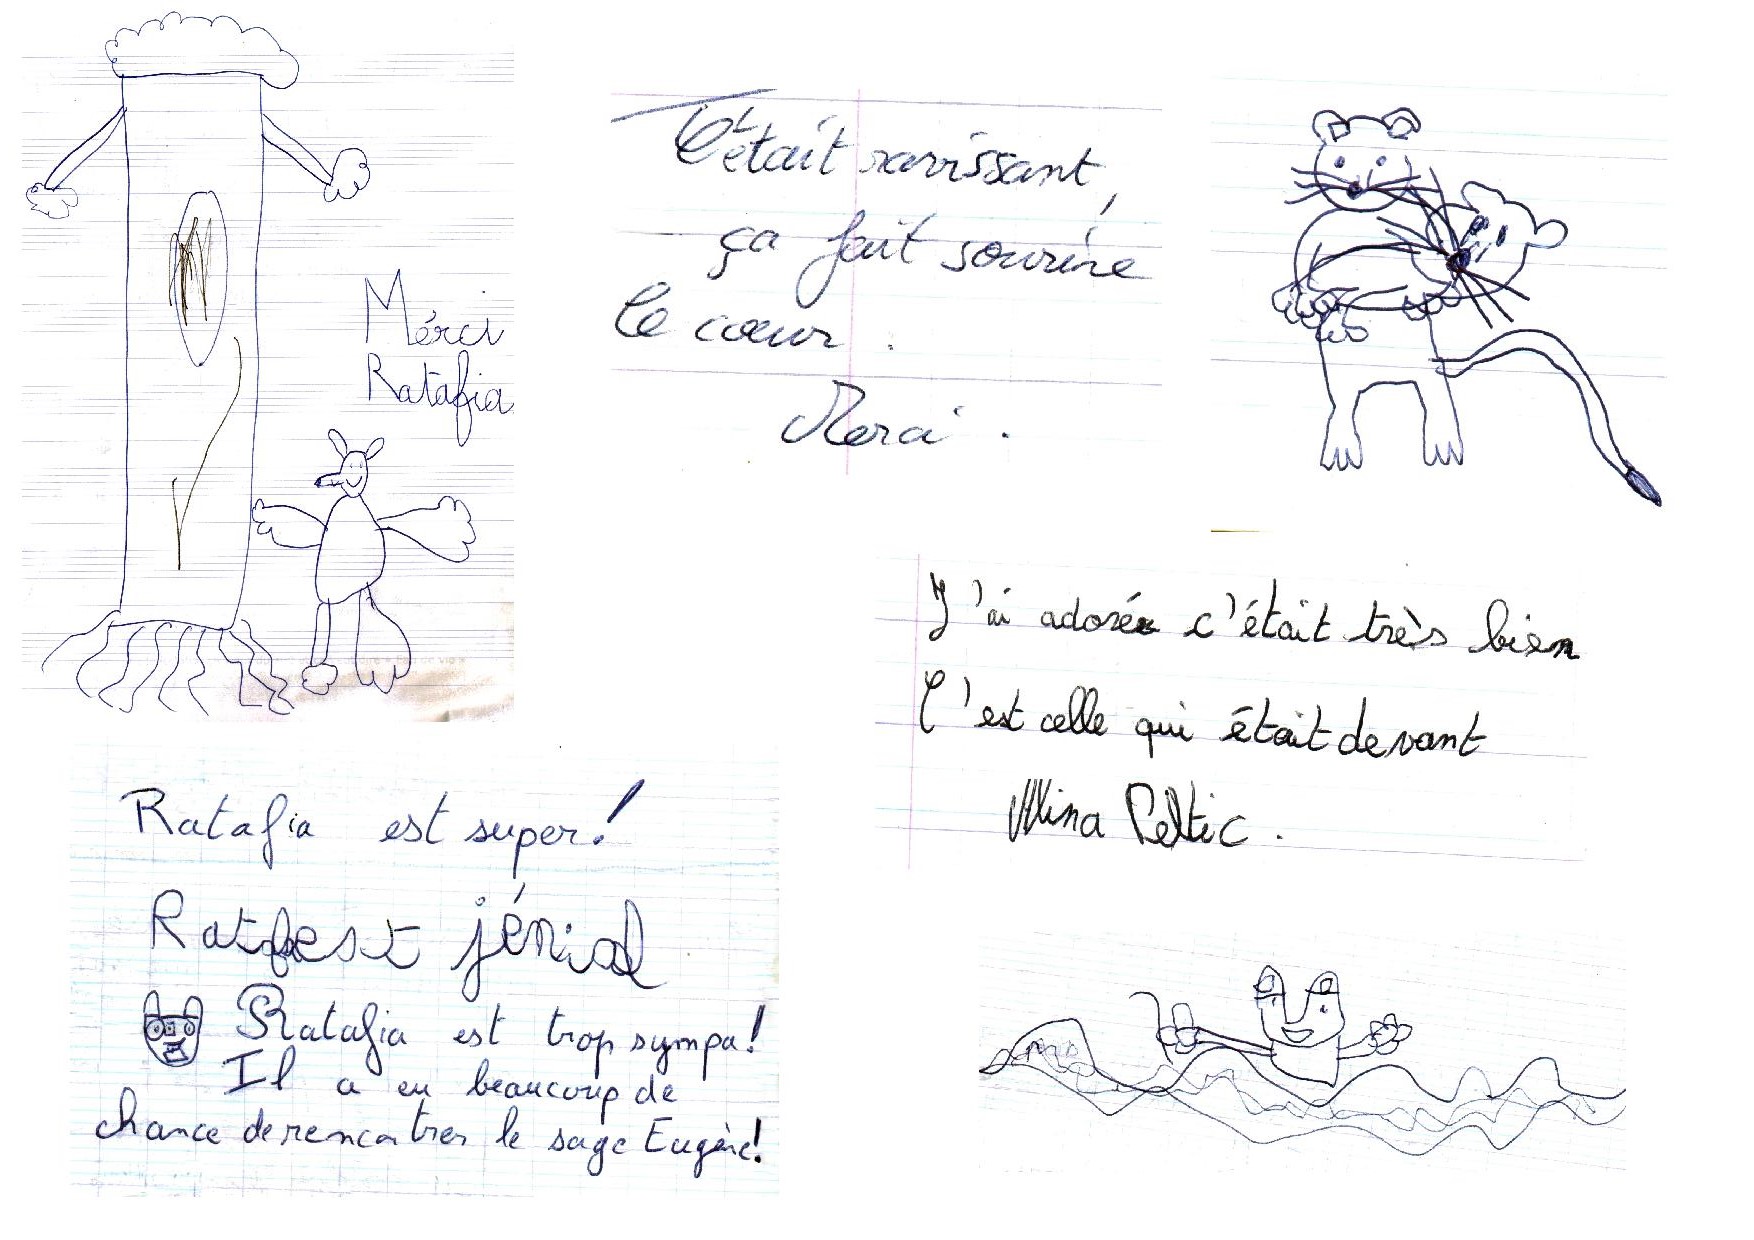 Mérci
Ratafia
C'était ravissant,
ça fait sourire
le cœur.
Merci.
J'ai adorée c'était très bien
C'est celle qui était devant
Mina Peltic.
Ratafia est super!
Ratafest jénial
Ratafia est trop sympa!
Il a eu beaucoup de
chance de rencontrer le sage Eugène!